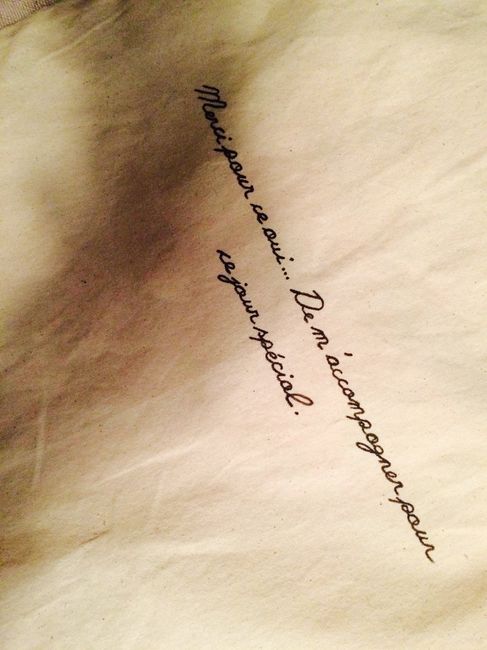 Merci pour ce oui... De m'accompagner pour
ce jour spécial.